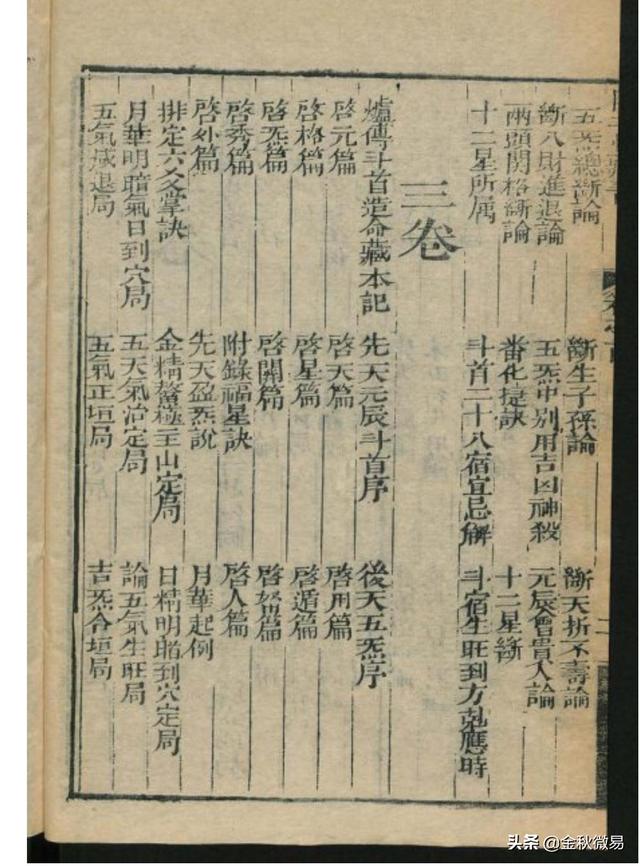 五炁總斷論　斷生子孫論　斷夭折不壽論
斷八財進退論　五炁中別用吉凶神殺　元辰會貴人論
兩頭関格斷論　番化捷訣　十二星斷
十二星所属　斗首二十八宿宜忌解　斗宿生旺到方剋應時
三卷
爐傳斗首造命藏本記　先天元辰斗首序　後天五炁序
啓元篇　啓天篇　啓用篇
啓格篇　啓星篇　啓遁篇
啓炁篇　啓開篇　啓努篇
啓秀篇　附錄福星訣　啓人篇
啓外篇　先天盈炁說　月華起例
排定六爻掌訣　金精鰲極主山定局　日精明暗到穴定局
月華明暗氣日到穴局　五天氣治定局　論五氣生旺局
五氣減退局　五氣正垣局　吉炁合垣局
头条 @金秋微易